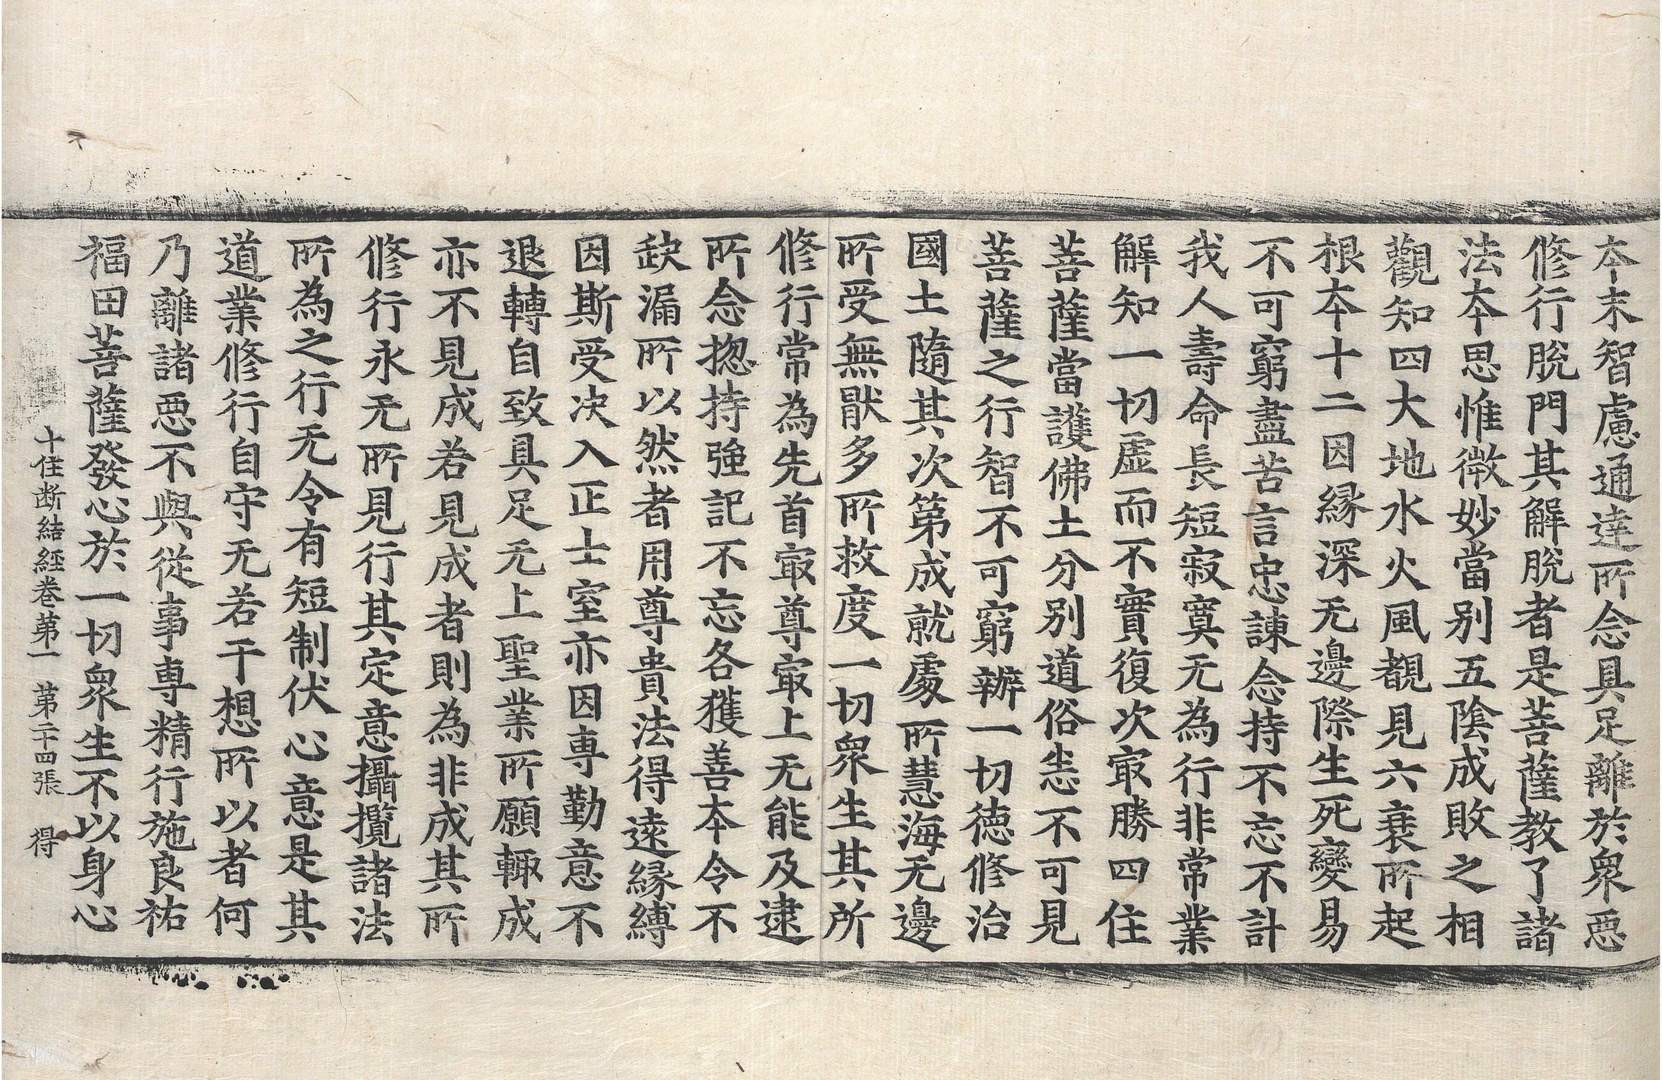 夲末智慮通達所念具足離於衆惡
修行脫門其解脫者是菩薩教了諸
法夲思惟微妙當别五陰成敗之相
觀知四大地水火風覩見六衰所起
根夲十二因縁深无邊際生死變易
不可窮盡苦言忠諫念持不忘不計
我人壽命長短寂寞无為行非常業
解知一切虛而不實復次㝡勝四住
菩薩當護佛土分别道俗恙不可見
菩薩之行智不可窮辦一切德修治
國土隨其次第成就處所慧海无邊
所受無猒多所救度一切衆生其所
修行常為先首㝡尊㝡上无能及逮
所念揔持強記不忘各獲善夲令不
缺漏所以然者用尊貴法得遠縁縛
因斯受决入正士室亦因専勤意不
退轉自致具足无上聖業所願輙成
亦不見成若見成者則為非成其所
修行永无所見行其定意攝攬諸法
所為之行无令有短制伏心意是其
道業修行自守无若干想所以者何
乃離諸惡不與從事専精行施良祐
福田菩薩發心於一切衆生不以身心
十住断結經卷第一 第二十四張 得